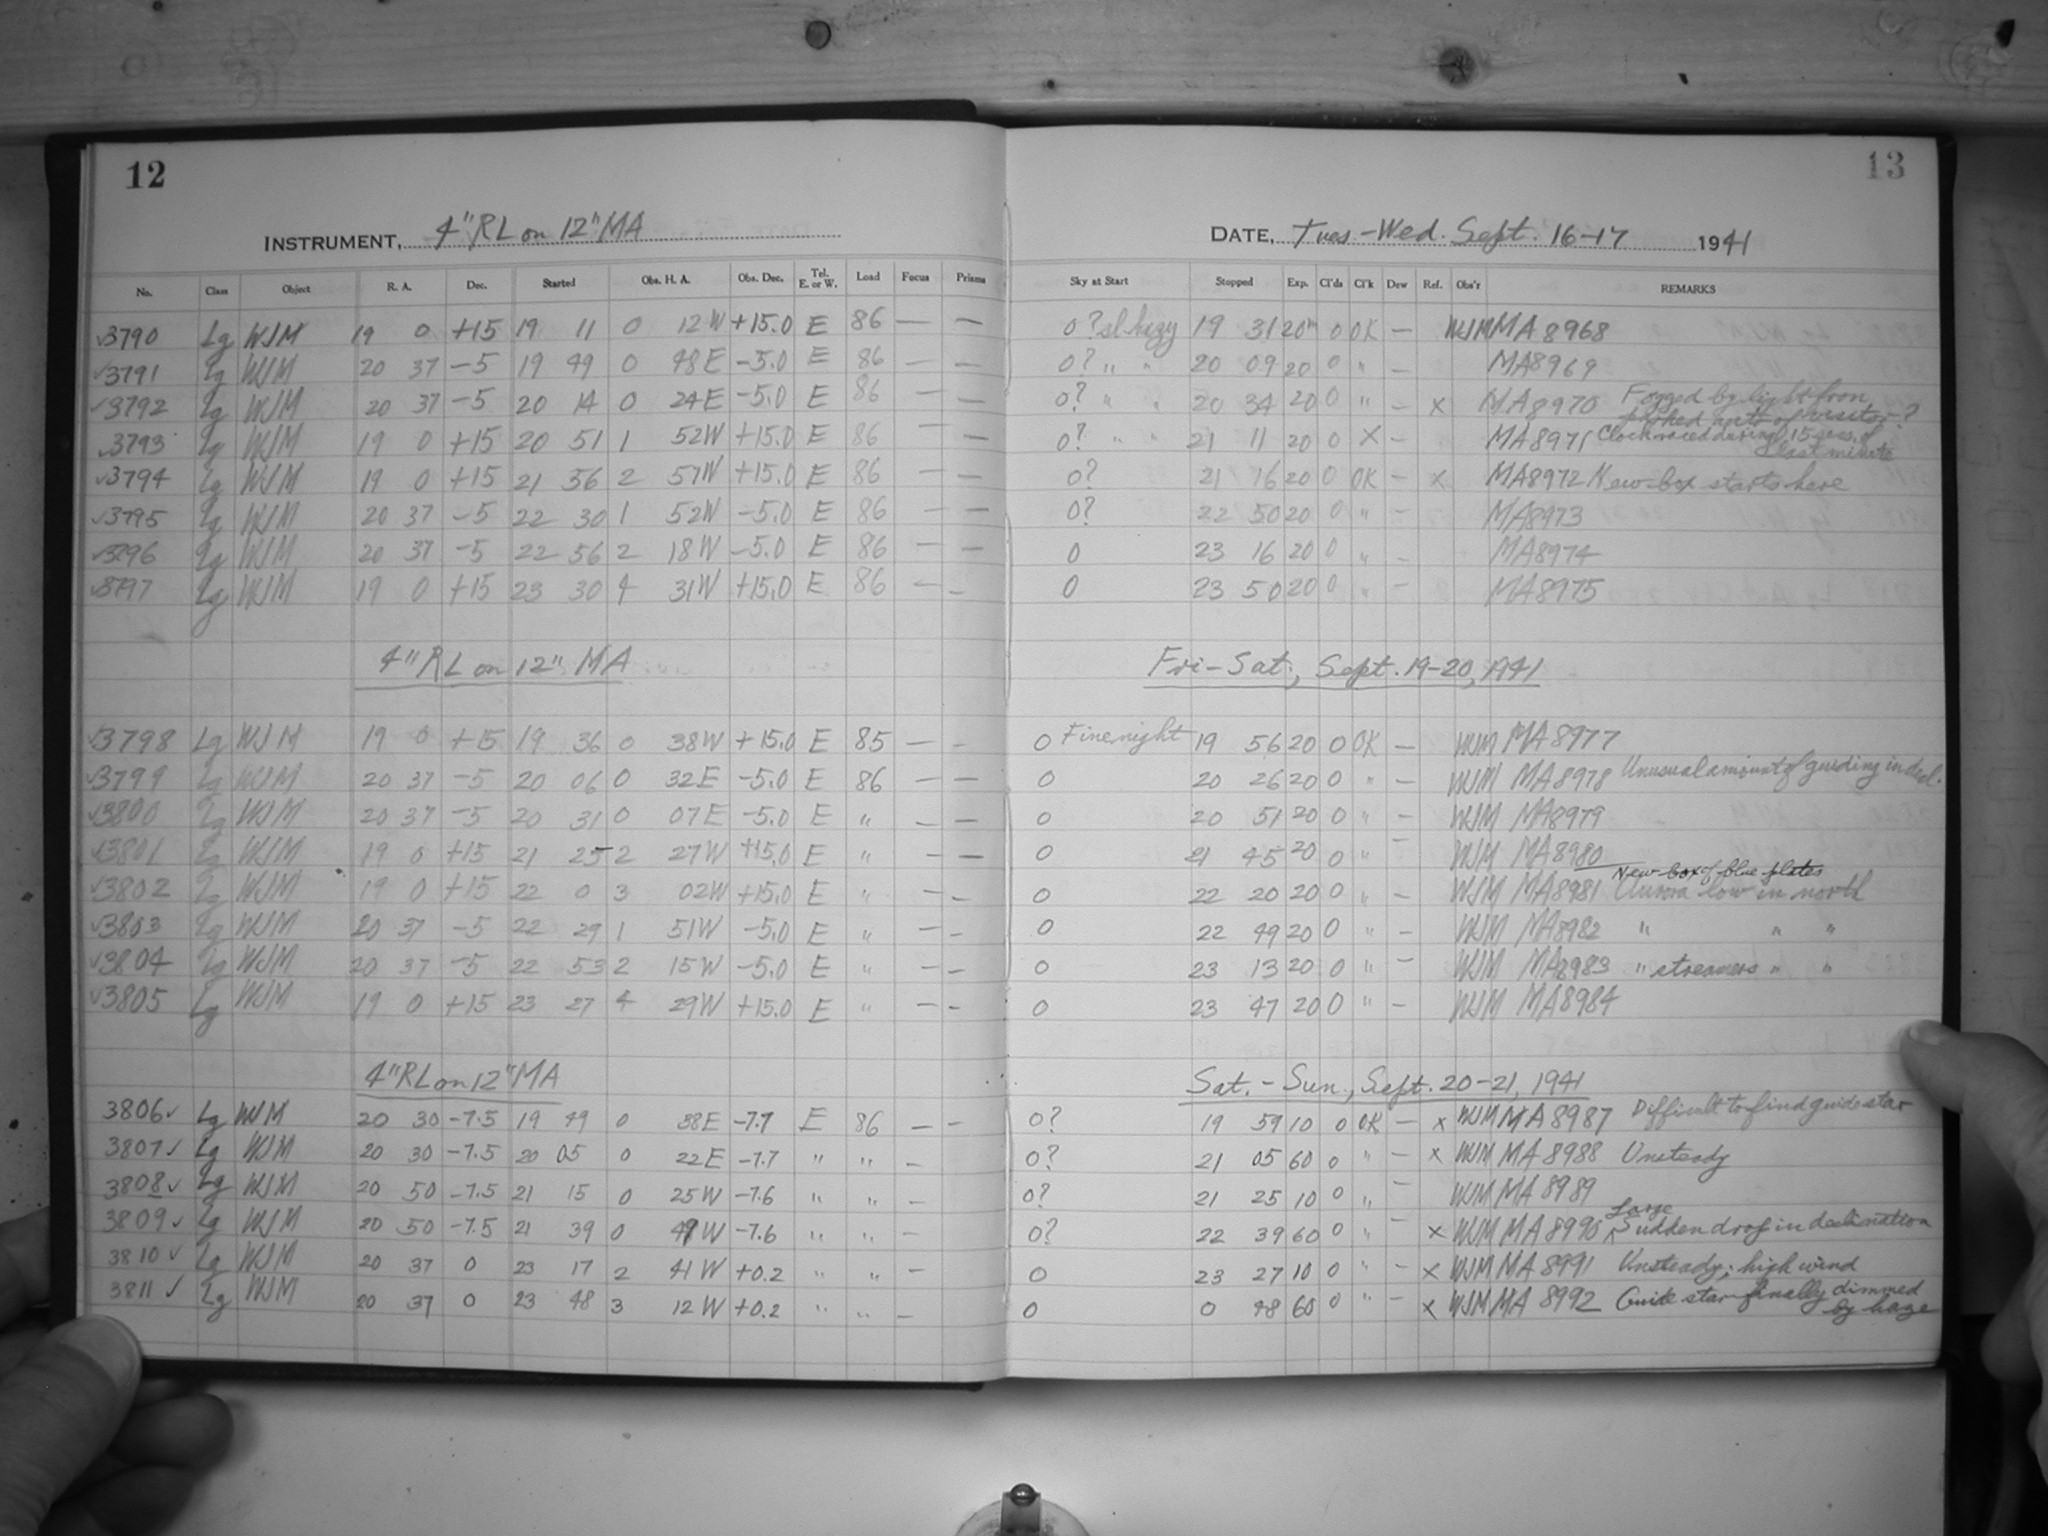 12
13
INSTRUMENT, 4" RL on 12" MA
DATE, Tues-Wed. Sept. 16-17 1941
No. Class Object R. A. Dec. Started Obs. H. A. Obs. Dec. Tel. E. or W. Load Focus Prisms Sky at Start Stopped Exp. Cl'ds Cl'k Dew Ref. Obs'r REMARKS
√3790 Lg WJM 19 0 +15 19 11 0 12W +15.0 E 86 — — 0? sl. hazy 19 31 20m 0 OK — WJM MA8968
√3791 Lg WJM 20 37 -5 19 49 0 48E -5.0 E 86 — — 0? " " 20 09 20 0 " — MA8969
√3792 Lg WJM 20 37 -5 20 14 0 24E -5.0 E 86 — — 0? " " 20 34 20 0 " — x MA8970 Fogged by light from parked auto of visitor?
√3793 Lg WJM 19 0 +15 20 51 1 52W +15.0 E 86 — — 0? " " 21 11 20 0 X — MA8971 Clock raced during 15 secs. of last minute
√3794 Lg WJM 19 0 +15 21 56 2 57W +15.0 E 86 — — 0? 21 16 20 0 OK — x MA8972 New box starts here
√3795 Lg WJM 20 37 -5 22 30 1 52W -5.0 E 86 — — 0? 22 50 20 0 " — MA8973
√3796 Lg WJM 20 37 -5 22 56 2 18W -5.0 E 86 — — 0 23 16 20 0 " — MA8974
√3797 Lg WJM 19 0 +15 23 30 4 31W +15.0 E 86 — — 0 23 50 20 0 " — MA8975
4" RL on 12" MA Fri-Sat, Sept. 19-20, 1941
√3798 Lg WJM 19 0 +15 19 36 0 38W +15.0 E 85 — — 0 Fine night 19 56 20 0 OK — WJM MA8977
√3799 Lg WJM 20 37 -5 20 06 0 32E -5.0 E 86 — — 0 20 26 20 0 " — WJM MA8978 Unusual amount of guiding in decl.
√3800 Lg WJM 20 37 -5 20 31 0 07E -5.0 E " — — 0 20 51 20 0 " — WJM MA8979
√3801 Lg WJM 19 0 +15 21 25 2 27W +15.0 E " — — 0 21 45 20 0 " — WJM MA8980
New box of blue plates
√3802 Lg WJM 19 0 +15 22 0 3 02W +15.0 E " — — 0 22 20 20 0 " — WJM MA8981 Aurora low in north
√3803 Lg WJM 20 37 -5 22 29 1 51W -5.0 E " — — 0 22 49 20 0 " — WJM MA8982 " " "
√3804 Lg WJM 20 37 -5 22 53 2 15W -5.0 E " — — 0 23 13 20 0 " — WJM MA8983 " streamers " "
√3805 Lg WJM 19 0 +15 23 27 4 29W +15.0 E " — — 0 23 47 20 0 " — WJM MA8984
4" RL on 12" MA Sat. - Sun., Sept. 20-21, 1941
3806√ Lg WJM 20 30 -7.5 19 49 0 38E -7.7 E 86 — — 0? 19 59 10 0 OK — x WJM MA8987 Difficult to find guide star
3807√ Lg WJM 20 30 -7.5 20 05 0 22E -7.7 " " — 0? 21 05 60 0 " — x WJM MA8988 Unsteady
3808√ Lg WJM 20 50 -7.5 21 15 0 25W -7.6 " " — 0? 21 25 10 0 " — WJM MA8989
3809√ Lg WJM 20 50 -7.5 21 39 0 49W -7.6 " " — 0? 22 39 60 0 " — x WJM MA8990 Large Sudden drop in declination
3810√ Lg WJM 20 37 0 23 17 2 41W +0.2 " " — 0 23 27 10 0 " — x WJM MA8991 Unsteady; high wind
3811√ Lg WJM 20 37 0 23 48 3 12W +0.2 " " — 0 0 48 60 0 " — x WJM MA8992 Guide star finally dimmed by haze